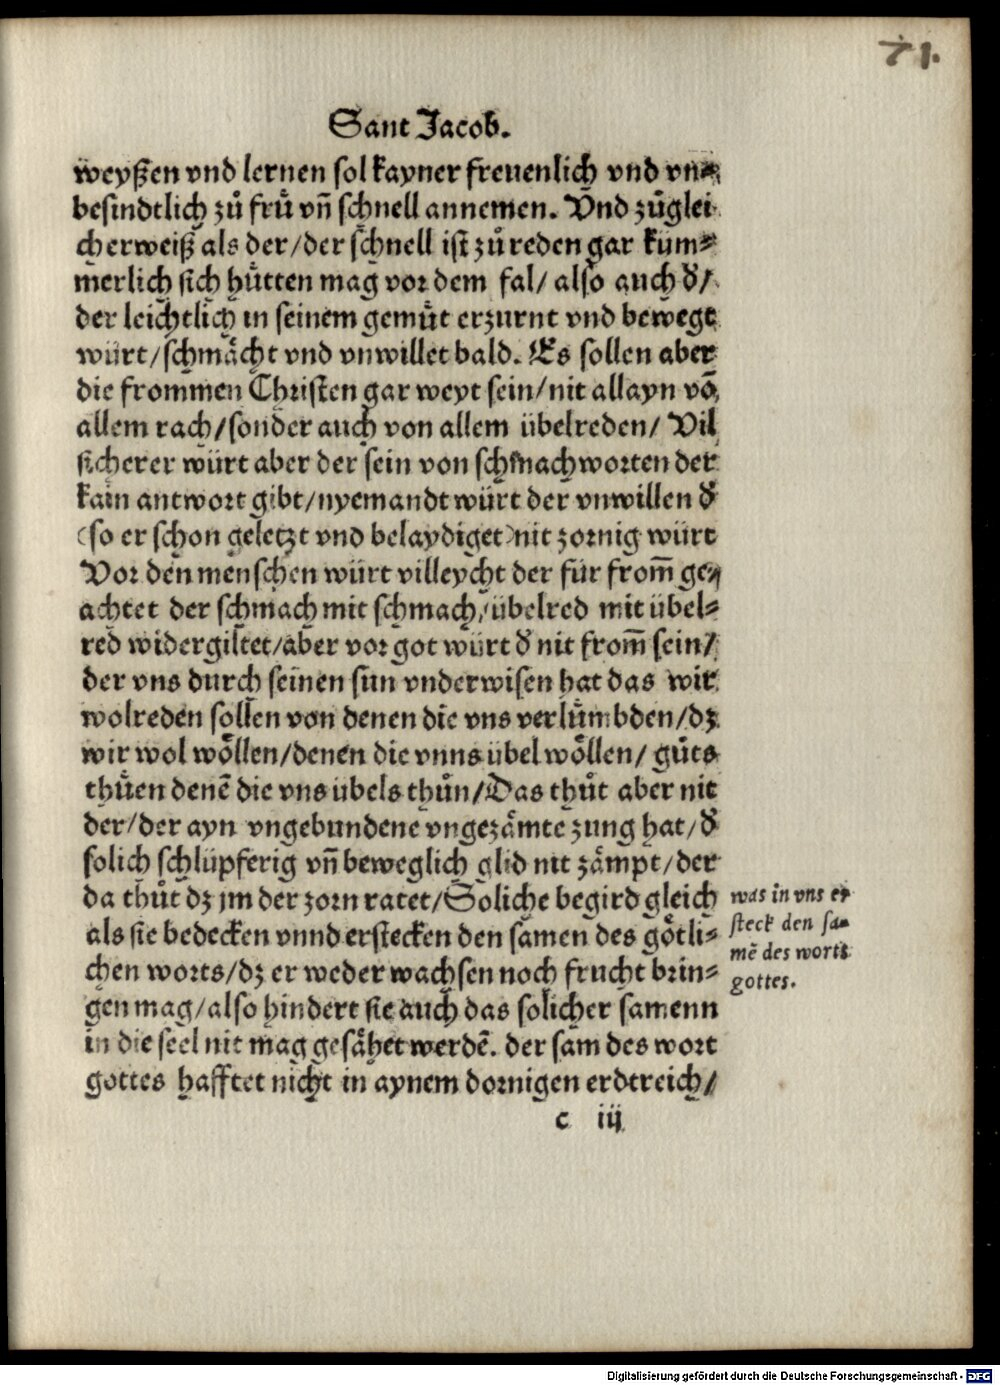 71.
Sant Jacob.
weyßen vnd lernen sol kayner freuenlich vnd vn⸗
besindtlich zů frů vñ schnell annemen. Vnd zů glei
cherweiß als der/der schnell ist zů reden gar küm⸗
merlich sich hu̍tten mag vor dem fal/ also auch d̄/
der leichtlich in seinem gemüt erzurnt vnd bewegt
würt/schmächt vnd vnwillet bald. Es sollen aber
die frommen Christen gar weyt sein/nit allayn vō
allem rach/sonder auch von allem übelreden/ Vil
sicherer würt aber der sein von schmachworten der
kain antwort gibt/nyemandt würt der vnwillen d̄
(so er schon geletzt vnd belaydiget)nit zornig würt
Vor den menschen würt villeycht der für from̄ ge⸗
achtet der schmach mit schmach/übelred mit übel⸗
red widergiltet/aber vor got würt d̄ nit from̄ sein/
der vns durch seinen sun vnderwisen hat das wir
wolreden sollen von denen die vns verlümbden/dz
wir wol wöllen/denen die vnns übel wöllen/ gůts
thůen denē die vns übels thůn/Das thůt aber nit
der/der ayn vngebundene vngezämte zung hat/d̄
solich schlüpferig vñ beweglich glid nit zämpt/der
da thůt dz jm der zorn ratet/Soliche begird gleich
als sie bedecken vnnd erstecken den samen des götli⸗
chen worts/dz er weder wachsen noch frucht brin⸗
gen mag/also hindert sie auch das solicher samenn
in die seel nit mag gesähet werdē. der sam des wort
gottes hafftet nicht in aynem dornigen erdtreich/
was in vns er
steck den sa⸗
mē des worts
gottes.
c iij
Digitalisierung gefördert durch die Deutsche Forschungsgemeinschaft - DFG